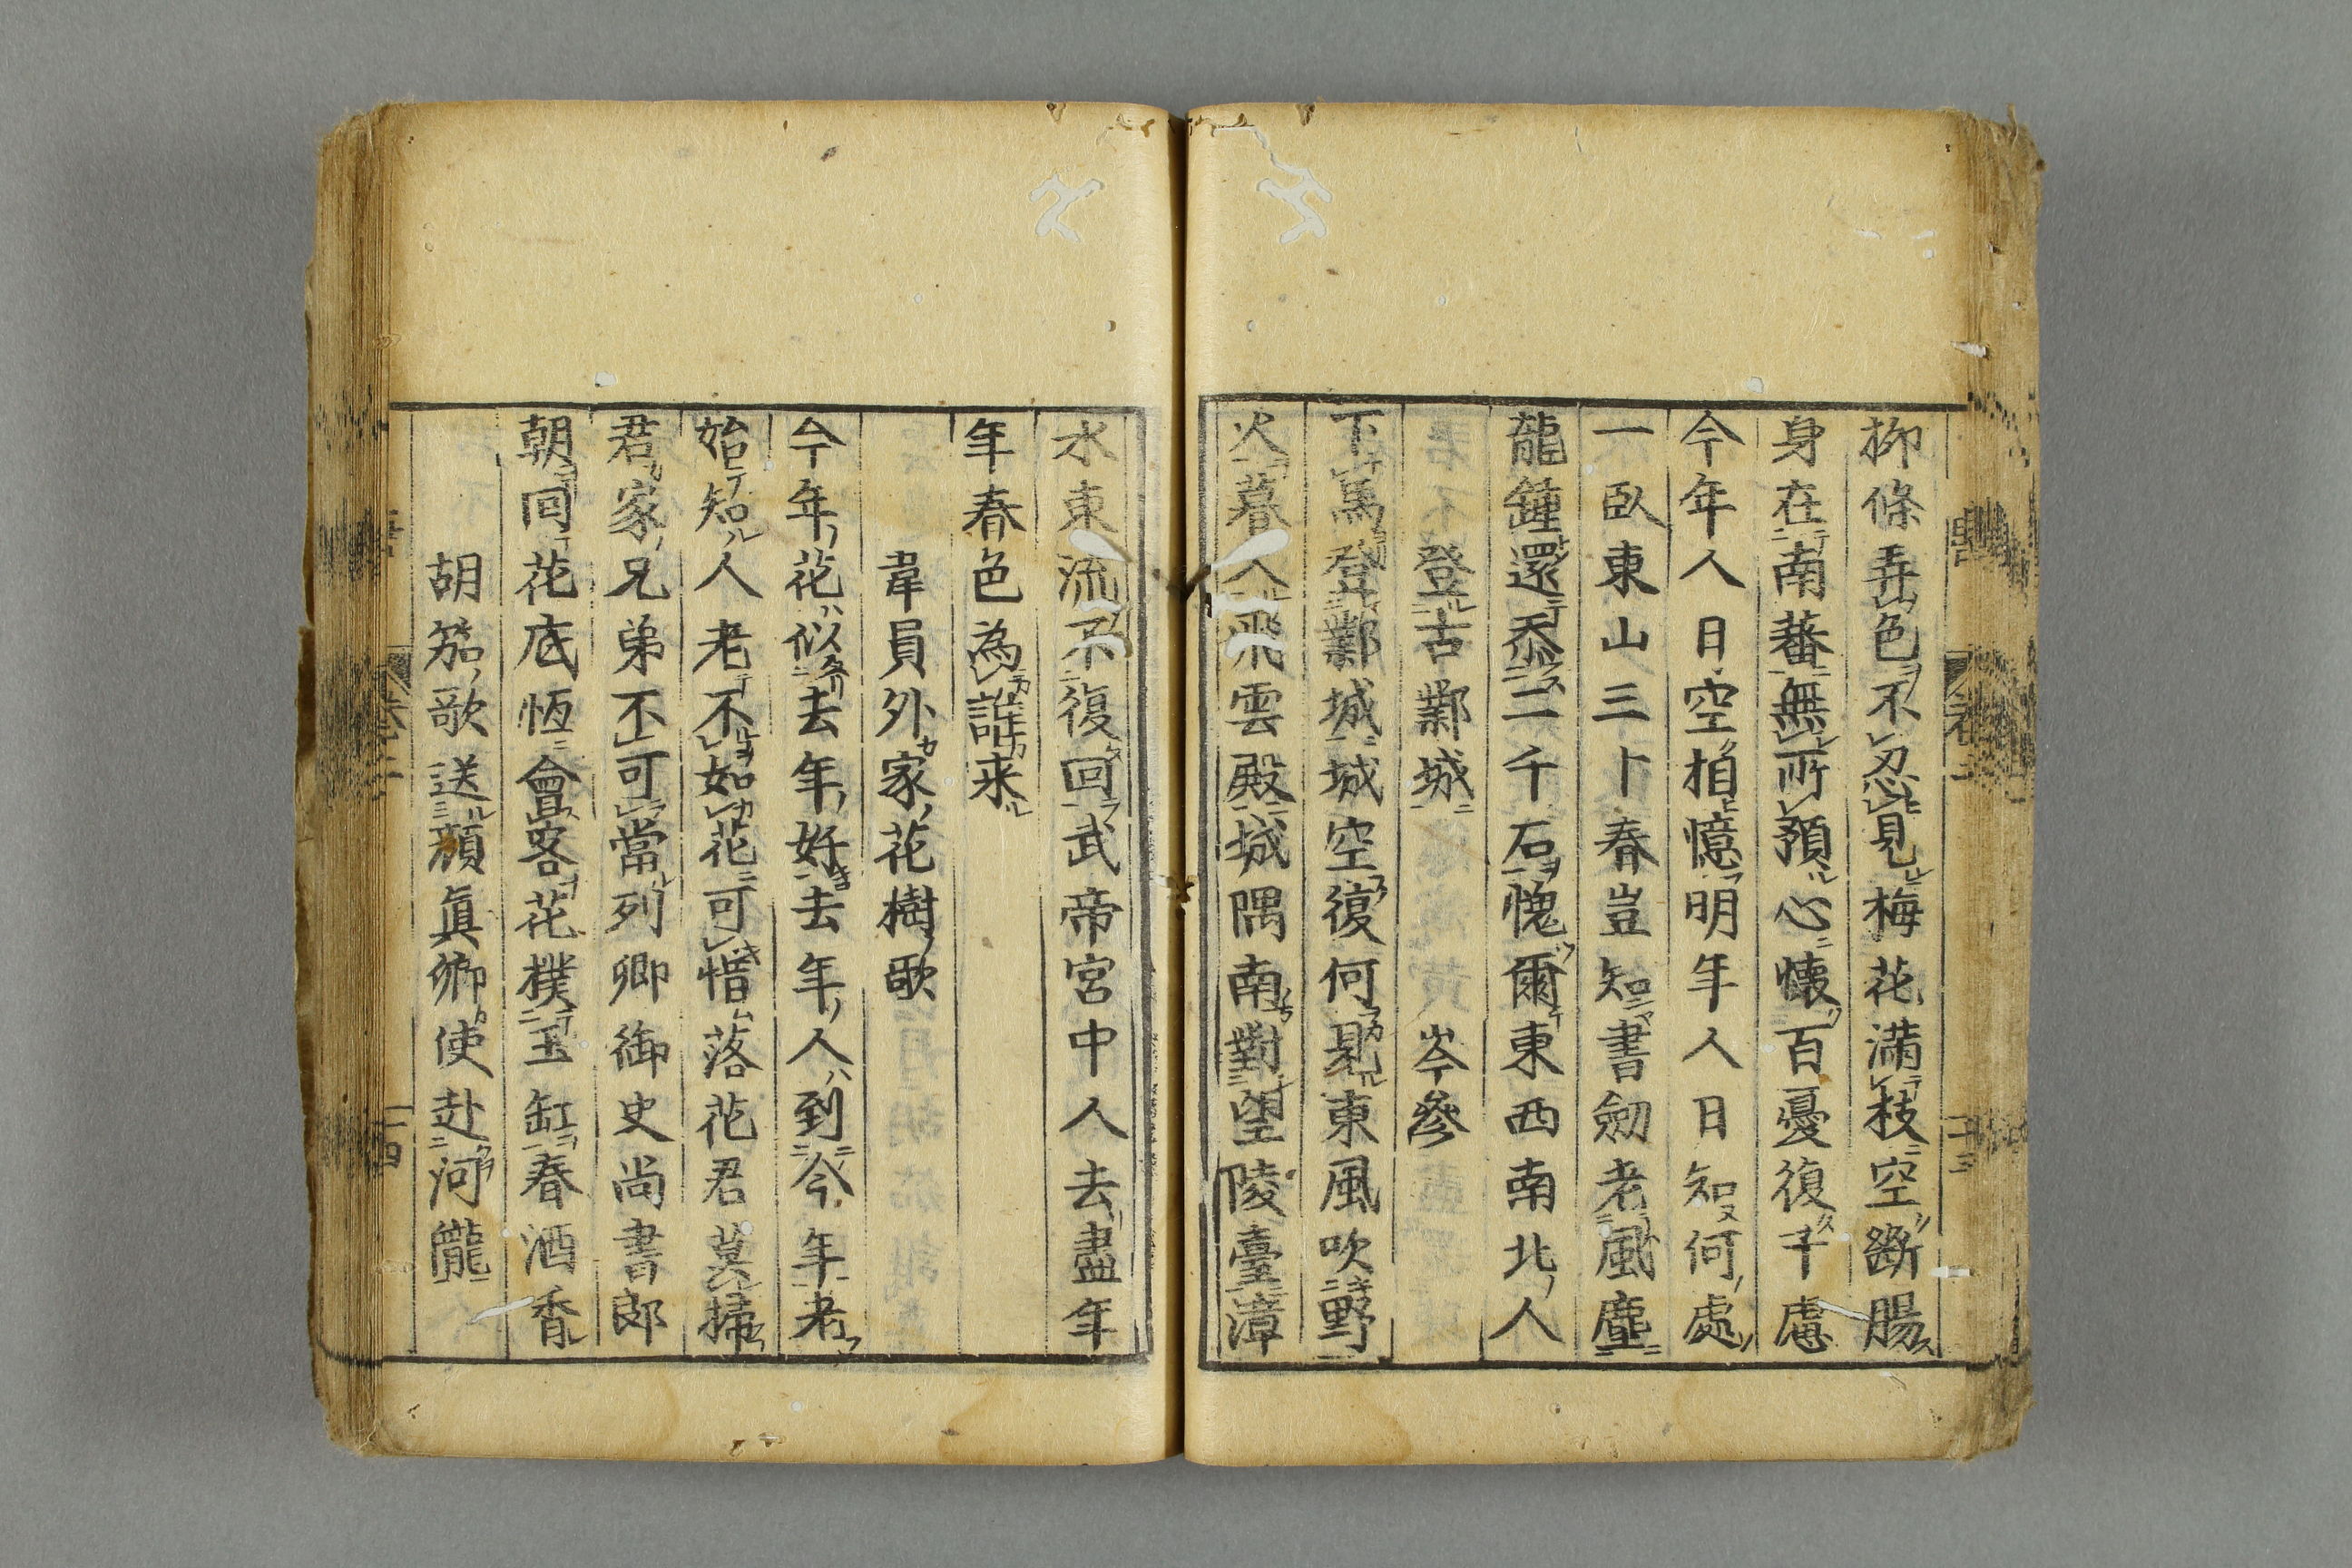 柳條弄色不忍見梅花滿枝空斷腸
身在南蕃無所預心懷百憂復千慮
今年人日空相憶明年人日知何處
一臥東山三十春豈知書劒老風塵
龍鍾還忝二千石愧爾東西南北人
登古鄴城　岑參
下馬登鄴城城空復何見東風吹野
火暮入飛雲殿城隅南對望陵臺漳
水東流不復回武帝宮中人去盡年
年春色為誰来
韋員外家花樹歌
今年花似去年好去年人到今年老
始知人老不如花可惜落花君莫掃
君家兄弟不可當列卿御史尚書郎
朝回花底恆會客花撲玉缸春酒香
胡笳歌送顏眞卿使赴河隴